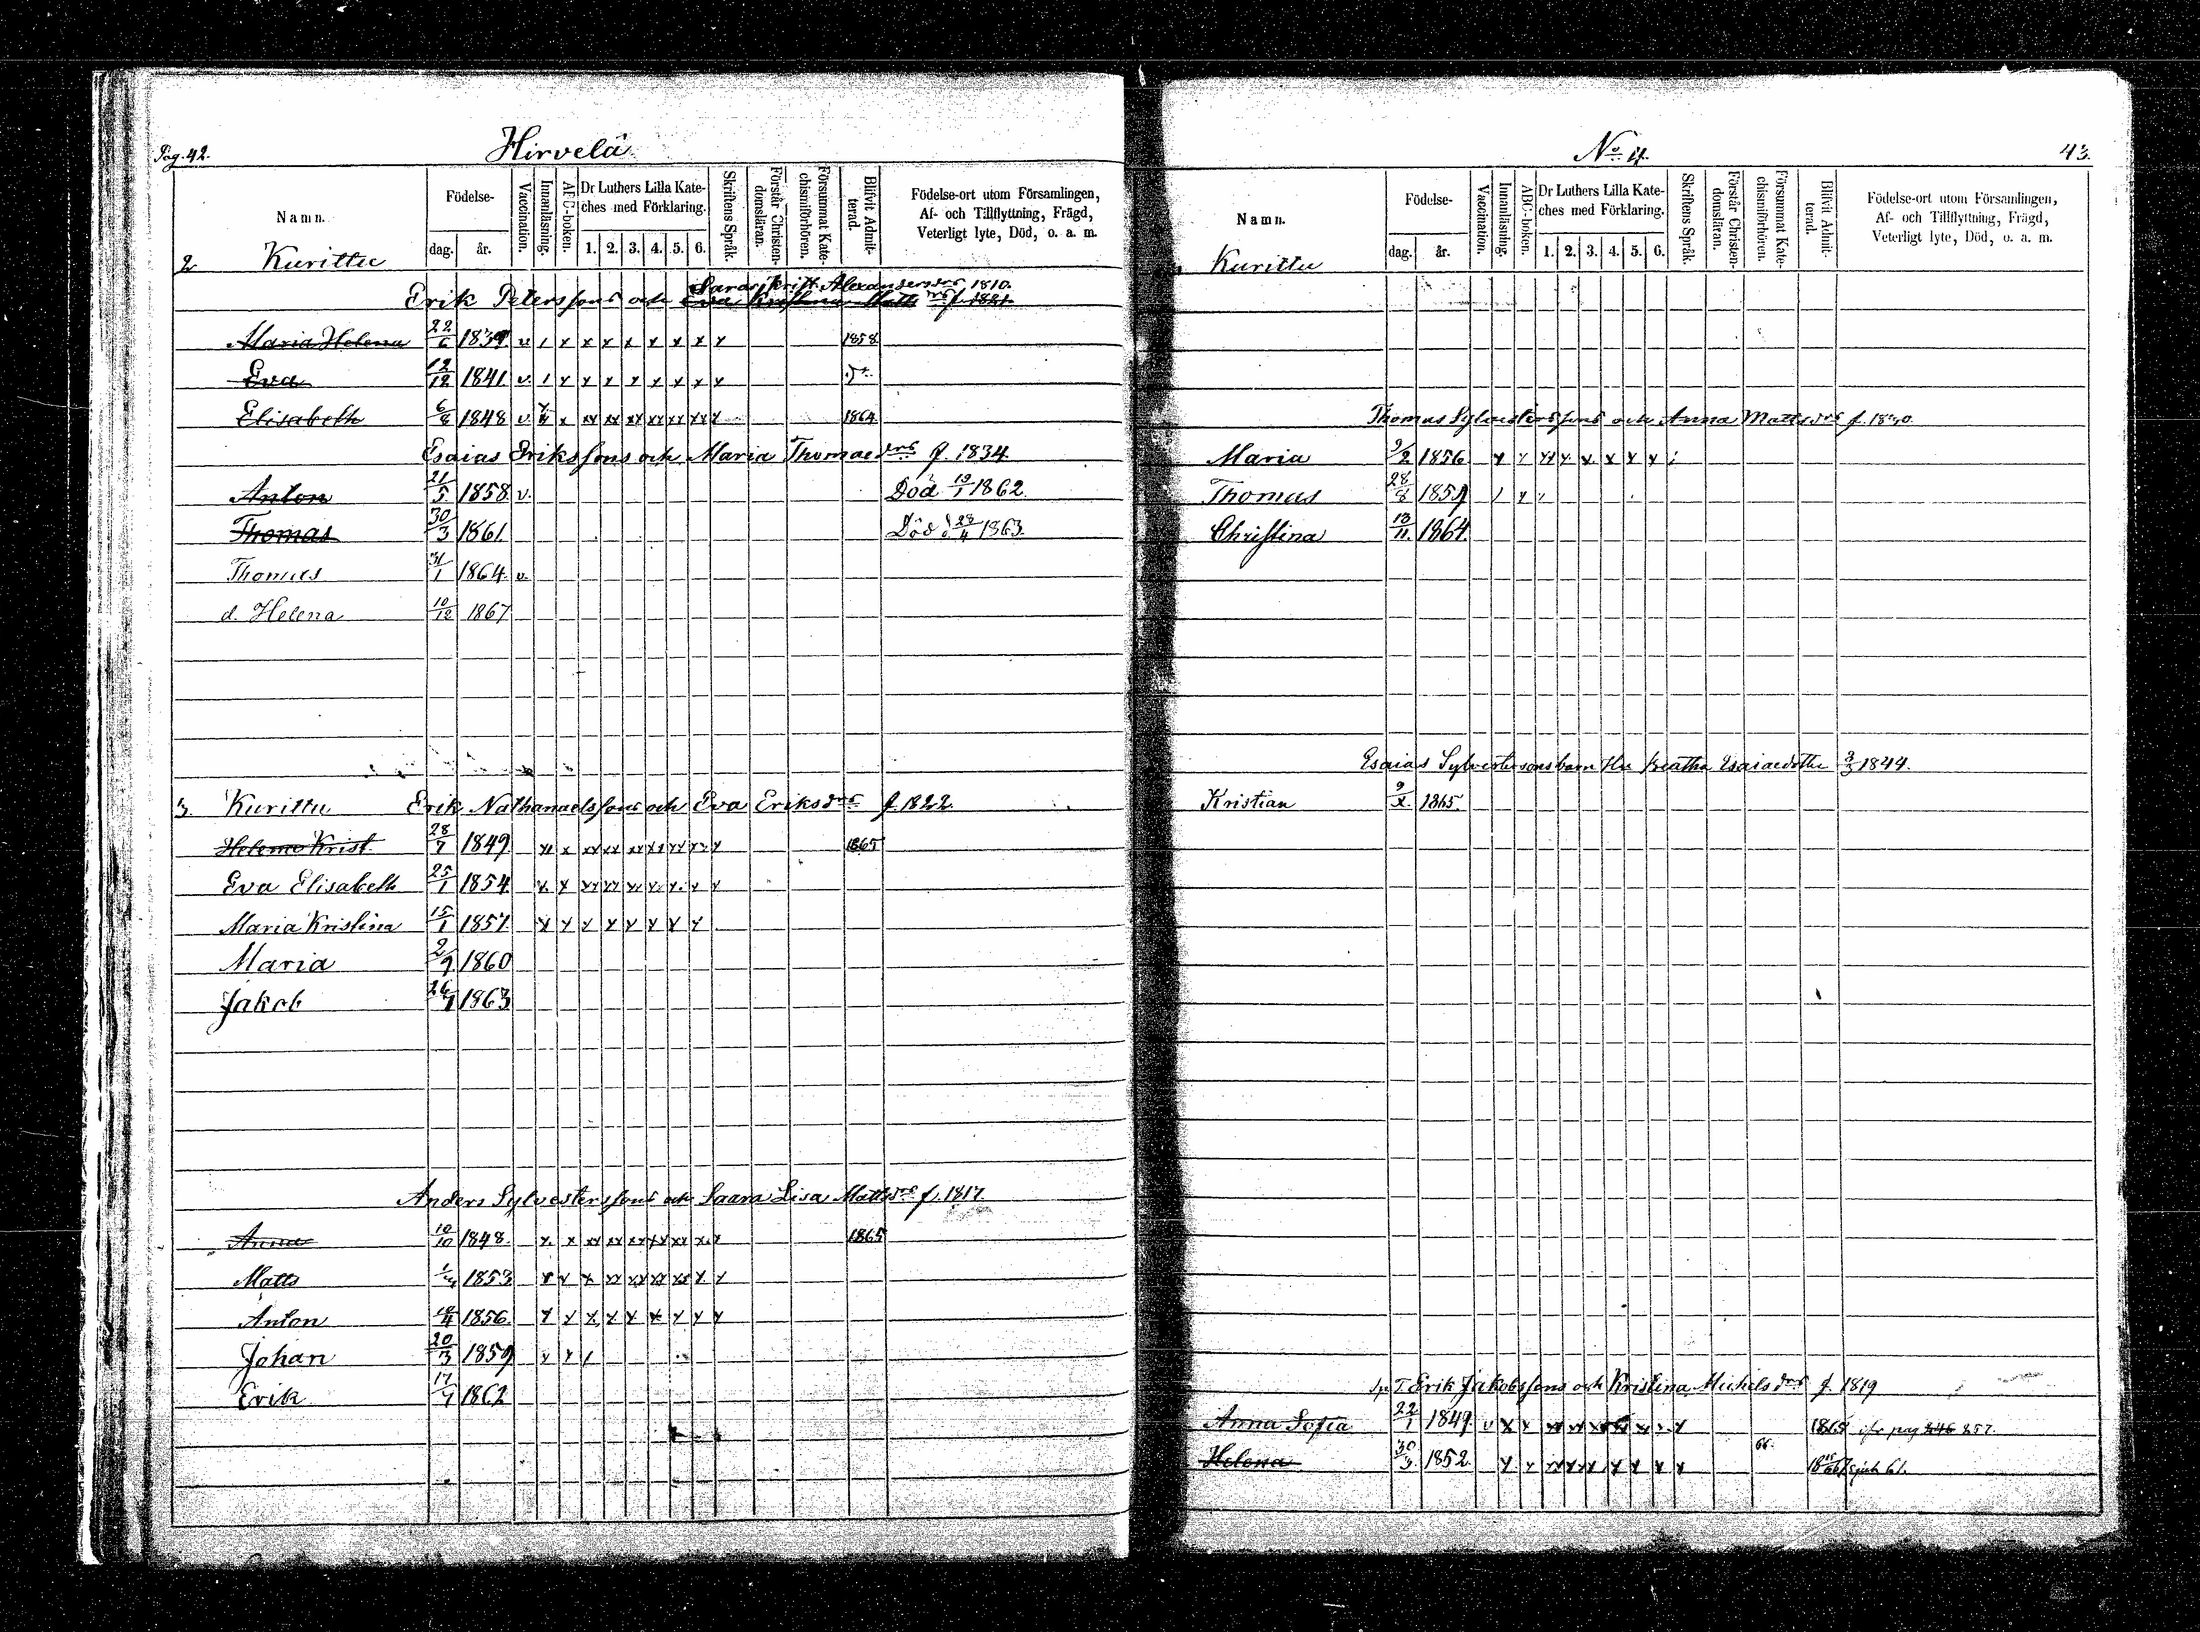 Pag. 42.
Hirvelä
Namn.
Födelse-
dag.
år.
Vaccination.
Innanläsning.
ABC-boken.
Dr Luthers Lilla Kate-
ches med Förklaring.
1. 2. 3. 4. 5. 6.
Skriftens Språk.
Förstår Christen-
domsläran.
Försummat Kate-
chismiförhören.
Blifvit Admit-
terad.
Födelse-ort utom Församlingen,
Af- och Tillflyttning, Frägd,
Veterligt lyte, Död, o. a. m.
2 Kurittu
Alexandersdrs 1810.
Erik Peterssons och Eva Kristina Matts drs f. 1821
Maria Helena 22/6 1839 v / x x x x x x x x 1858
Eva 12/12 1841 v / x x x x x x x x
Elisabeth 6/8 1848 v x x xx xx xx xx xx xx x 1864
Esaias Erikssons och Maria Thomaedrs f. 1834
Anton 21/5 1858 v. Död 1862
Thomas 30/3 1861 Död d 28/4 1863.
Thomas 31/1 1864 v.
d. Helena 10/12 1867
3. Kurittu Erik Nathanaelssons och Eva Eriksdrs f 1822
Helena Krist. 28/7 1849 xx x xx xx xx xx xx xx x 1865
Eva Elisabeth 25/1 1854 x x xx xx xx x x x x
Maria Kristina 15/1 1857 x x x x x x x x
Maria 2/9 1860
Jakob 1863
Anders Sylvesterssons och Saara Lisa Mattsdrs f. 1817
Anna 10/10 1848 x x xx xx xx xx xx x x 1865
Matts 1853 x x x xx xx xx xx x x
Anton 1856 x x x x x x x x x
Johan 20/3 1859 x x /
Erik 1862
No 4. 43.
Namn.
Födelse-
dag.
år.
Vaccination.
Innanläsning.
ABC-boken.
Dr Luthers Lilla Kate-
ches med Förklaring.
1. 2. 3. 4. 5. 6.
Skriftens Språk.
Förstår Christen-
domsläran.
Försummat Kate-
chismiförhören.
Blifvit Admit-
terad.
Födelse-ort utom Församlingen,
Af- och Tillflyttning, Frägd,
Veterligt lyte, Död, o. a. m.
Kurittu
Thomas Sylvesterssons och Anna Mattsdrs f. 1830
Maria 9/2 1856 x x xx x x x x x
Thomas 28/8 1859 / x
Christina 13/11 1864
Esaias Sylvestersons barn Beatha Esaiaedotter 1844.
Kristian 9/X 1865.
Erik Jakobssons och Kristina Michelsdrs f 1819
Anna Sofia 22/1 1849 v x x xx xx xx xx x x x 1865 pag 846 857.
Helena 30/3 1852 x x xx xx xx x x x x 66. 61.